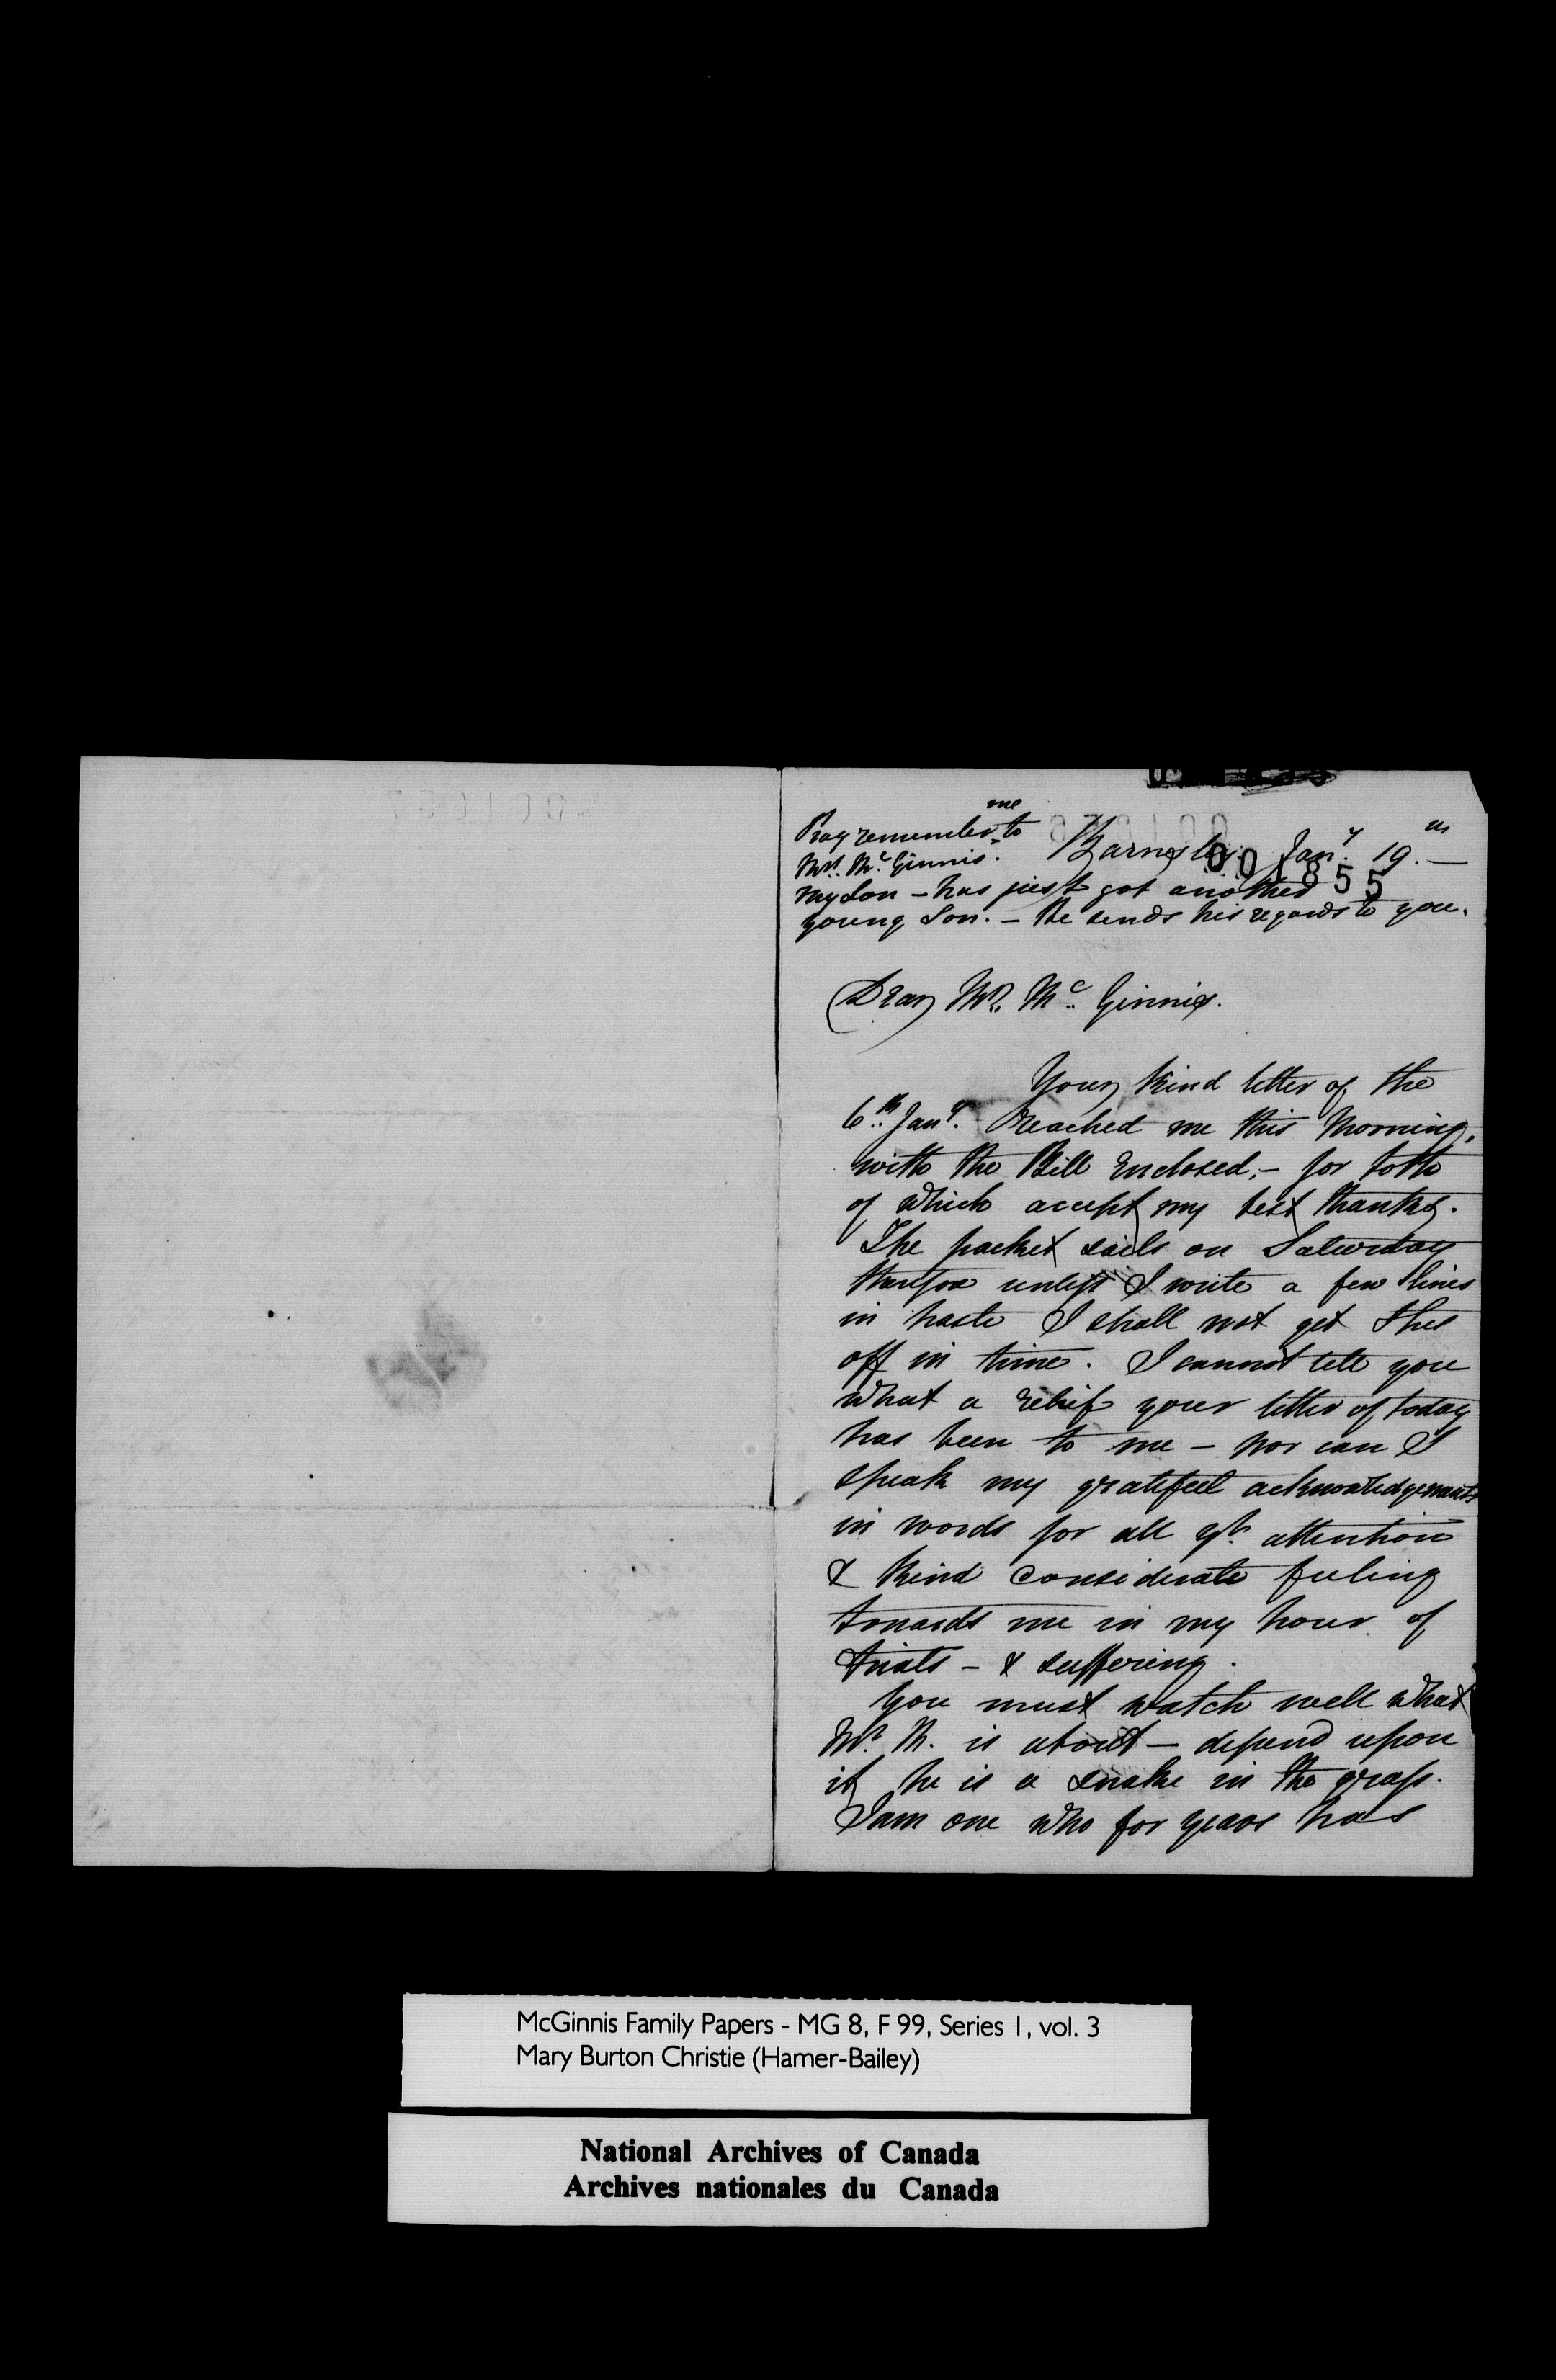 me
Pray remember to
Mrs. Mc. Ginnis.
Jany. 19.th —
001855
my Son – has just got another
young Son. – He sends his regards to you.
Dear Mr. Mc. Ginnis.
Your kind letter of the
6.th Jany. reached me this Morning,
with the Bill Enclosed, – for both
of which accept my best thanks.
The packet sails on Saturday
therefore unless I write a few lines
in haste I shall not get this
off in time. I cannot tell you
what a relief your letter of today
has been to me – nor can I
speak my grateful acknowledgements
in words for all yr. attention
& kind considerate feeling
towards me in my hour of
trials – & suffering.
You must watch well what
Mr. M. is about – depend upon
it he is a snake in the grass.
I am one who for years has
McGinnis Family Papers - MG 8, F 99, Series 1, vol. 3
Mary Burton Christie (Hamer-Bailey)
National Archives of Canada
Archives nationales du Canada